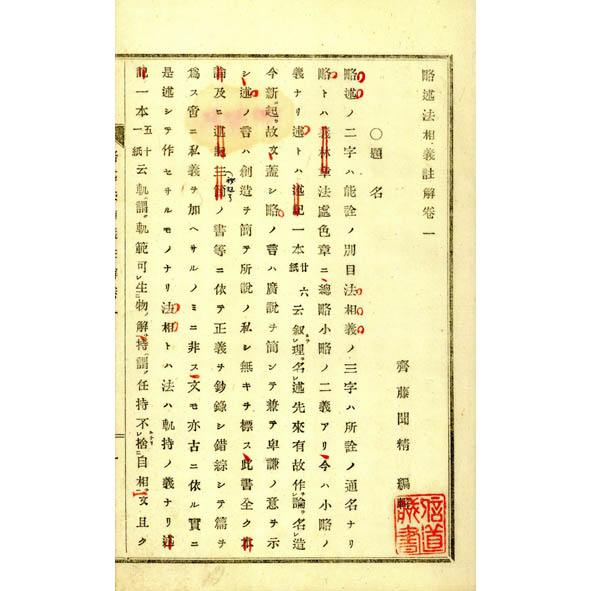 略述法相義註解卷一
齊藤聞精 編輯
〇題名
略述ノ二字ハ能詮ノ別目法相義ノ三字ハ所詮ノ通名ナリ
略トハ義林章法處色章ニ總略小略ノ二義アリ今ハ小略ノ
義ナリ述トハ述記一本廿六紙云叙レ理ヲ名レ述先來有故作レ論ヲ名レ造
今新起ル故文蓋シ略ノ言ハ廣説ヲ簡ンテ兼テ卑謙ノ意ヲ示
シ述ノ言ハ創造ヲ簡テ所説ノ私シ無キヲ標ス此書全ク本
論及ヒ述記主簡ノ書等ニ依テ正義ヲ鈔錄シ錯綜シテ篇ヲ
爲ス啻ニ私義ヲ加ヘサルノミニ非ス文モ亦古ニ依ル實ニ
是述シテ作セサルモノナリ法相トハ法ハ軌持ノ義ナリ述
記一本五十一紙云軌ハ謂ク軌範可レ生二物ノ解一持ハ謂ク任持不レ捨二自相一文且ク
信道藏書